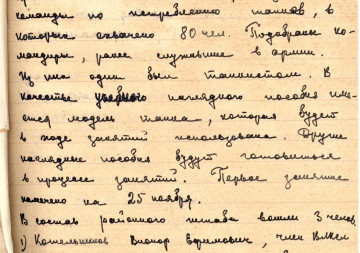 команды по истреблению танков, в
которых охвачено 80 чел. Подобраны ко-
мандиры, ранее служившие в армии.
Из них один был танкистом. В
качестве учебного наглядного пособия име-
ется модель танка, которая будет
в ходе занятий использована. Другие
наглядные пособия будут готовиться
в процессе занятий. Первое занятие
намечено на 25 ноября.
В состав районного штаба вошли 3 челов.
1) Котельников Виктор Ефимович, член ВЛКСМ